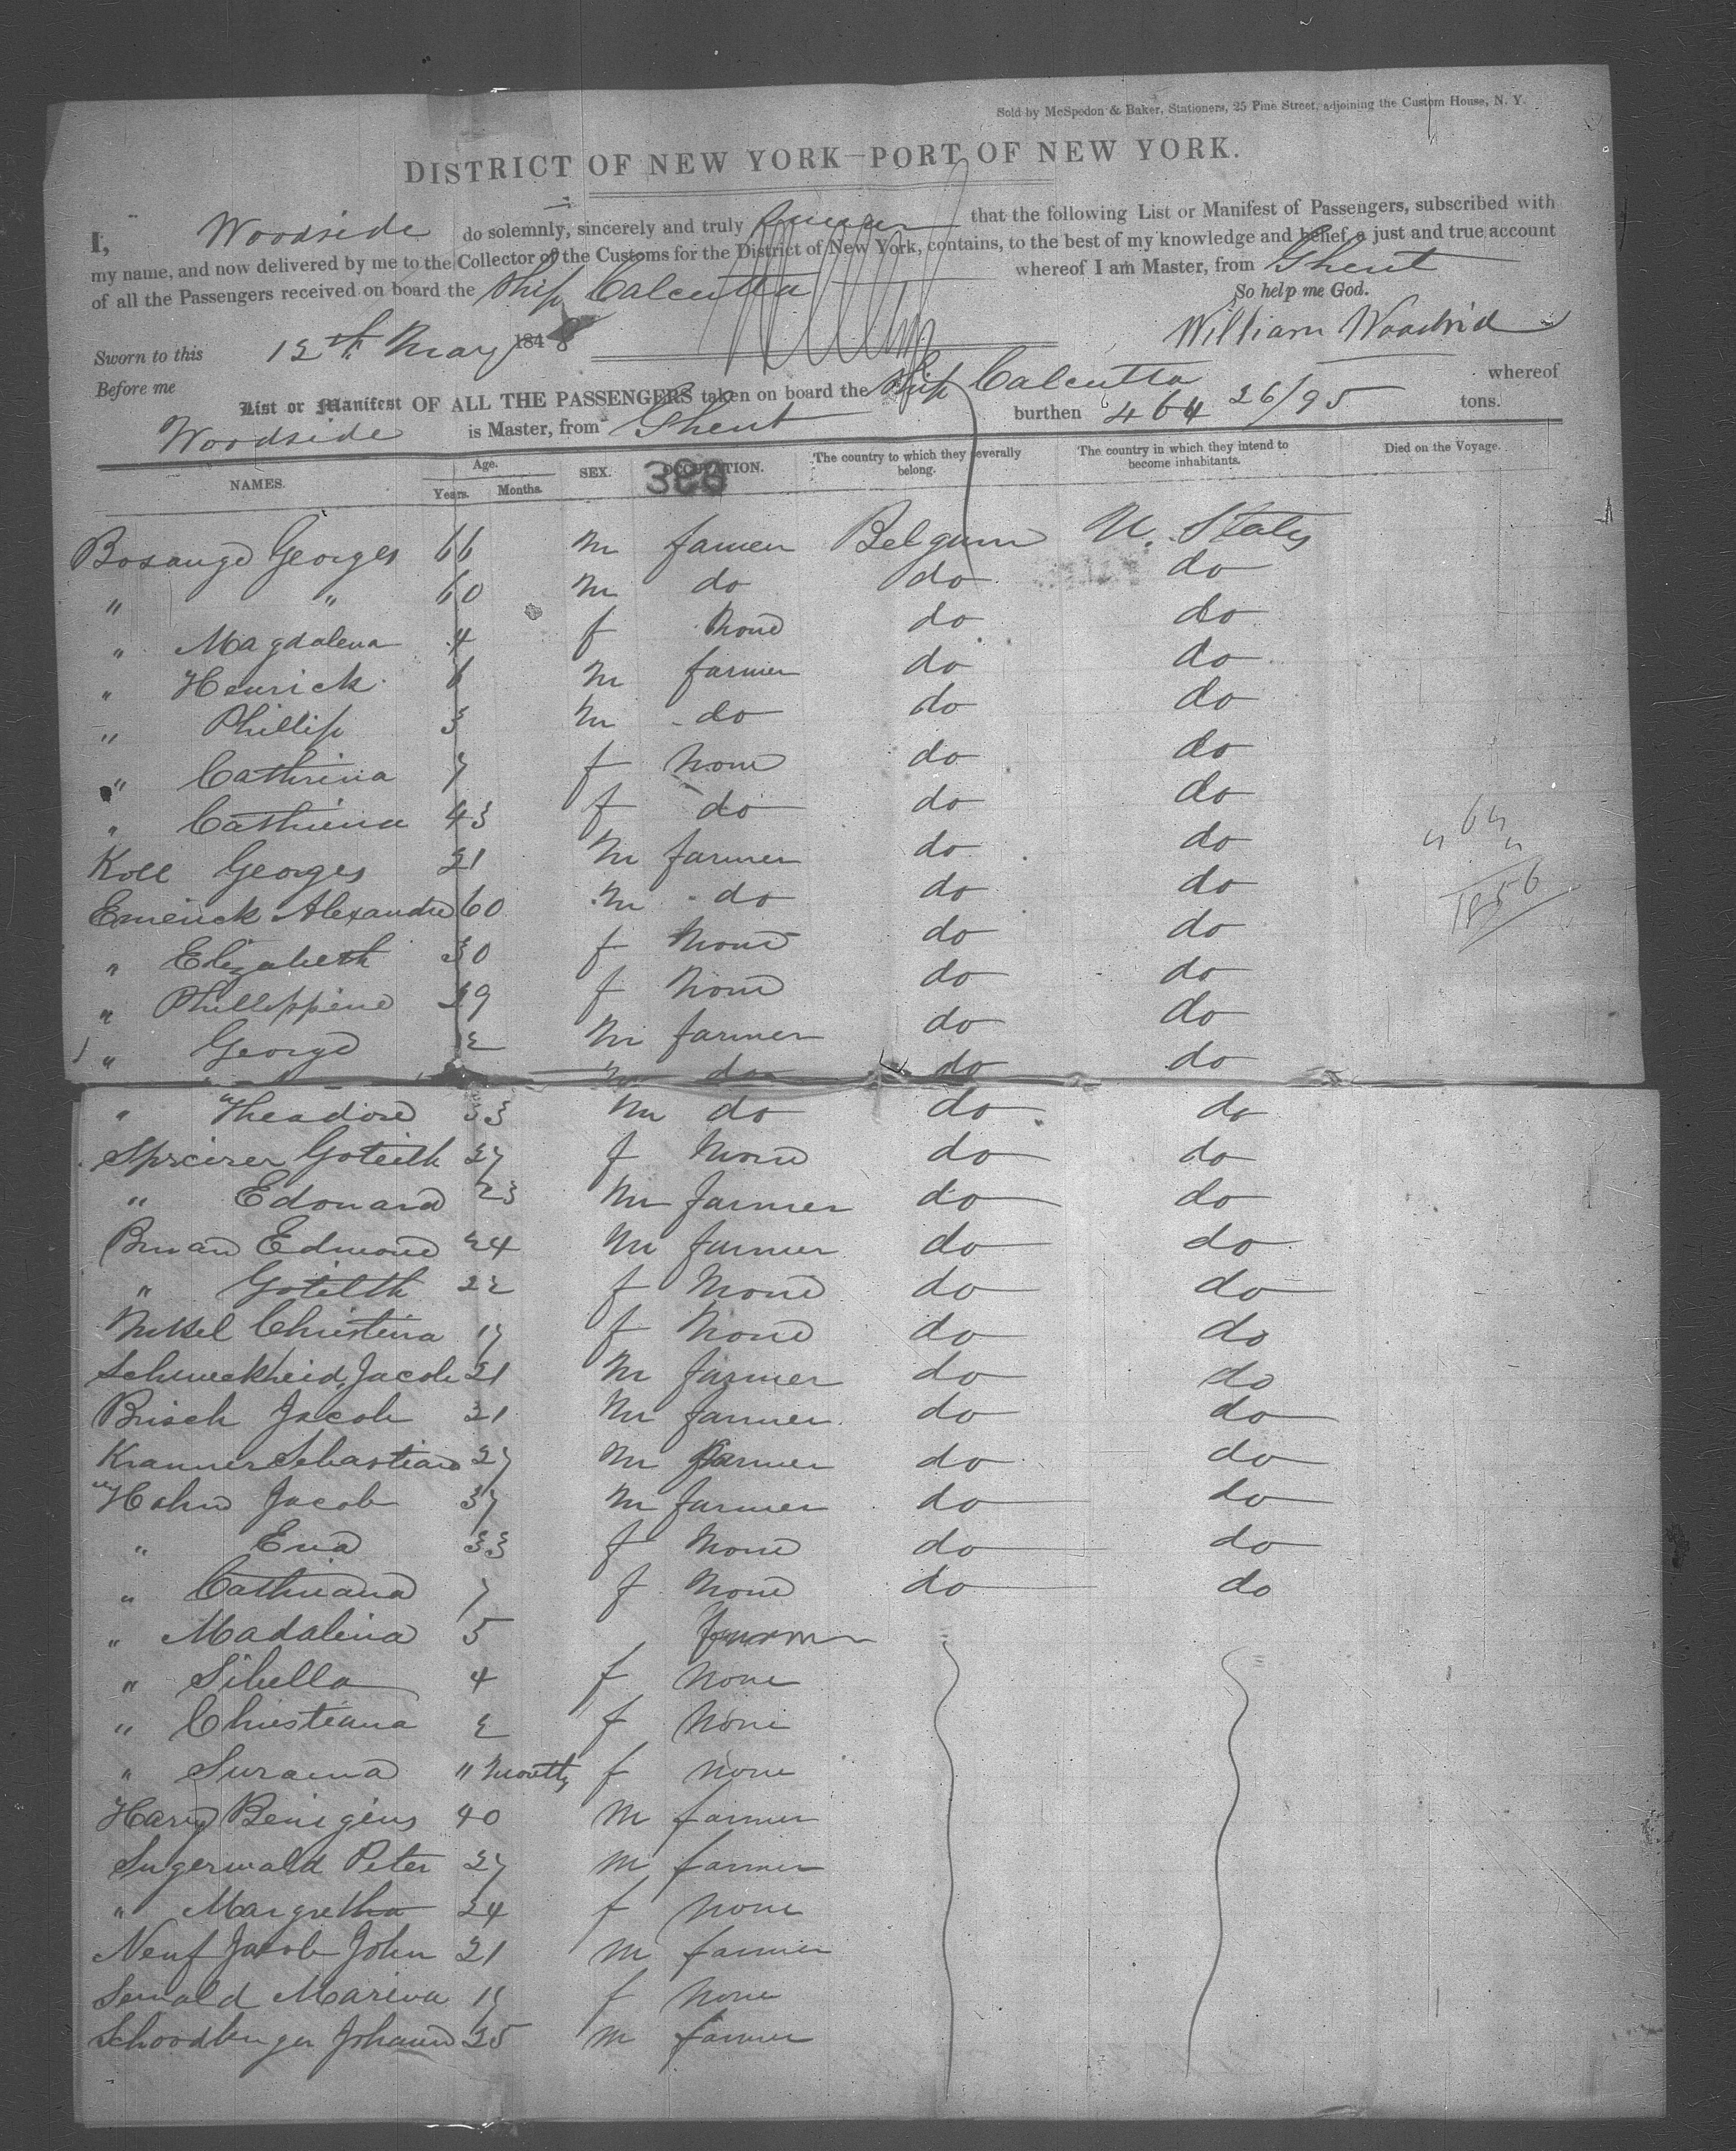 Sold by McSpedon & Baker, Stationers, 25 Pine Street, adjoining the Custom House, N. Y.
DISTRICT OF NEW YORK—PORT OF NEW YORK.
I, Woodside do solemnly, sincerely and truly that the following List or Manifest of Passengers, subscribed with
my name, and now delivered by me to the Collector of the Customs for the District of New York, contains, to the best of my knowledge and belief, a just and true account
of all the Passengers received on board the Ship Calcutta whereof I am Master, from Ghent
So help me God.
Sworn to this 12th May 1848 William
Before me
List or Manifest OF ALL THE PASSENGERS taken on board the Ship Calcutta whereof
Woodside is Master, from Ghent burthen 464 26/95 tons.
NAMES. Age. Years. Months. SEX. OCCUPATION. The country to which they severally belong. The country in which they intend to become inhabitants. Died on the Voyage.
388
Georges 66 m Belgium U. States
" " 60 m do do do
" Magdalena 4 f None do do
" Henrick 6 m farmer do do
" Phillip 3 m do do do
" Cathrina 7 f None do do
" 43 f do do do
Koll Georges 21 m farmer do do
Emerick Alexandre 60 m do do do
" Elizabeth 30 f None do do
" Phillippine 29 f None do do
" George 12 m farmer do do
m do do do
" Theadore 33 m do do do
27 f None do do
" Edouard 23 m farmer do do
Edmond 24 m farmer do do
" 22 f None do do
Christina 17 f None do do
Jacob 21 m farmer do do
Jacob 21 m farmer do do
Sebastian 27 m farmer do do
Hahn Jacob 37 m farmer do do
" Eva 33 f None do do
" 7 f None do do
" Madalina 5
" Sibella 4 f none
" Christiana 2 f none
" 11 months f none
40 m farmer
Peter 27 m farmer
" Margretha 24 f none
Neuf Jacob John 21 m farmer
f none
25 m farmer